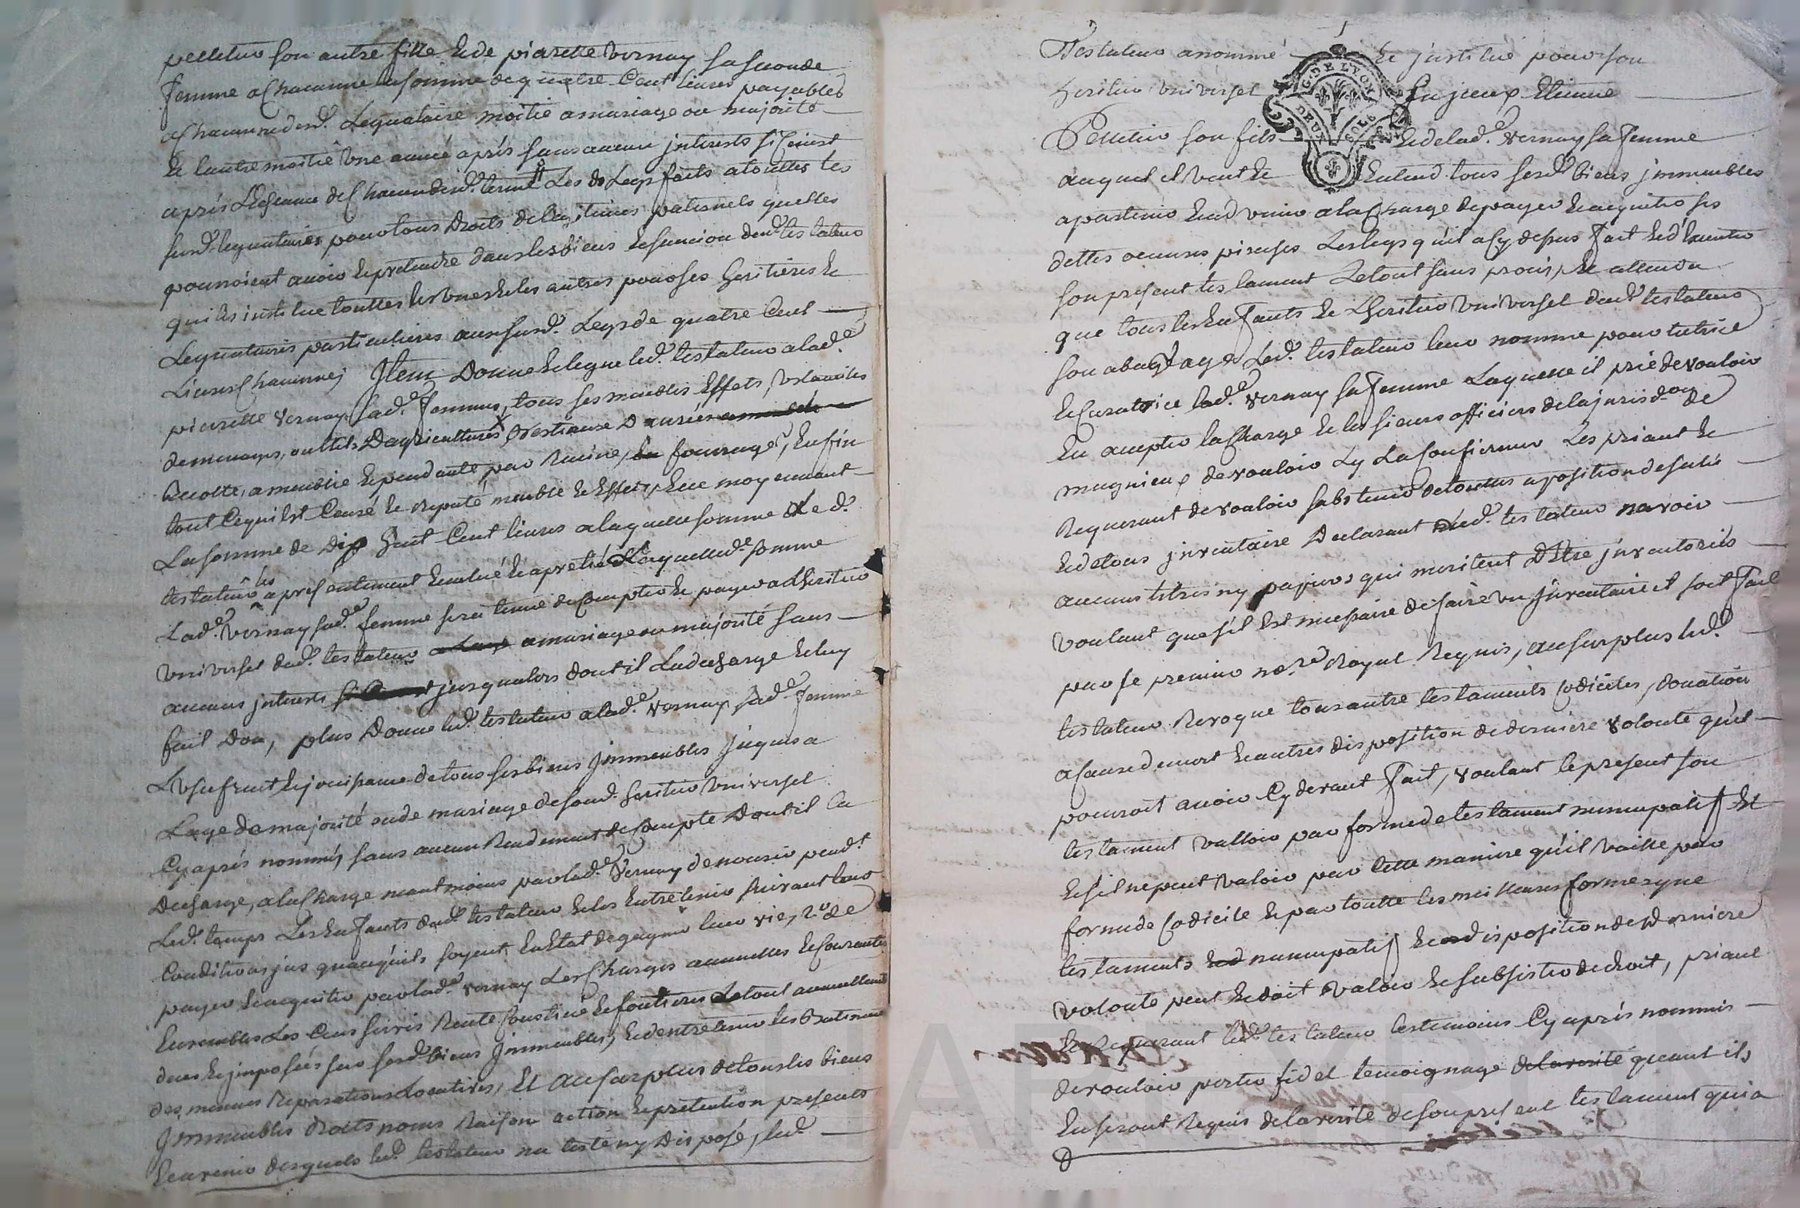 pelletier son autre fille & de pierrette vernay sa seconde
femme a chacunne la somme de quatre Cent livres payables
a chacunne desd. Legataires moitié a mariage ou majorité
& lautre moitié une année aprés sans aucun interests si ce n'est
aprés L'Eschance de Chacun desd. termes Les d. Legs faits a touttes les
susd. legataires pour tous Droits de legitimes paternels quelles
pourroient avoir & pretendre dans les biens & succession dud. testateur
qui les institue touttes les unes & les autres pour ses heritieres &
Legataires particulieres aux susd. Legs de quatre Cent
Livres Chacunnes Item Donne & legue led. testateur a lad.e
pierrette vernay sad.e femme, tous ses meubles Effets, ustanciles
de menages, outtils D'agricultures, Bestiaux Danrées
Recolte, ameublie & pendante par Racine, fourrage, Enfin
tout Ce qui Est Censé & reputé meuble & Effets, & ce moyennant
La somme de Dix huit Cent livres a laquelle somme Led.
testateur les a presentement Evalué & apretié Laquelle de. somme
Lad.e Vernay sad.e femme sera tenue de Compter & payer a l'heritier
universel dud. testateur a mariage ou majorité sans
aucuns interests jusqu'alors dont il La decharge & luy
fait Don, plus Donne led. testateur a lad.e Vernay sad.e femme
L'usufruit & jouissance de tous ses biens Immeubles jusques a
L'age de majorité ou de mariage de sond. heritier universel
Cy aprés nommé, sans aucun Rendement de Compte Dont il la
Decharge, a la charge neantmoins par lad.e Vernay de nourir pend.t
Led. temps Les Enfants dud. testateur & les Entretenir suivant leur
Condition jusqu'a ce qu'ils soyent En Etat de gagner leur vie, & de
payer & acquitter par lad.e Vernay Les Charges annuelles & Courantes
Ensembles Les Cens servis Rente fonciere
dues & imposées sur sesd. biens Immeubles, & d'entretenir les Batiments
des menues Reparations Locatives, Et au surplus de tous les biens
Immeubles droits noms Raisons action & pretention presents
& avenir desquels led. testateur na testé ny Disposé, led.
Testateur a nommé & institué pour son
heritier universel Etienne
Pelletier son fils & de lad.e Vernay sa femme
auquel il veut & Entend tous sesd. biens immeubles
apartenir & advenir a la Charge de payer & acquitter ses
dettes oeuvres pieuses Les legs qu'il a Cy dessus fait & d'executer
son present testament Le tout sans procis, & attendu
que tous les Enfants & L'heritier Universel dud. testateur
son a bas age, Led. testateur leur nomme pour tutrice
& Curatrice lad.e Vernay sa femme Laquelle il prie de vouloir
En accepter la Charge & les sieurs officiers de la jurisd.on de
magnieux de vouloir Ly La Confirmer Les priant &
Requerant de vouloir sabstenir de touttes aposition de scelés
& de tous inventaire Declarant led. testateur navoir
aucuns titres ny papiers qui meritent D'Etre inventoriés
voulant que s'il Est necessaire de faire un Inventaire il soit fait
par le premier no.re Royal Requis, au surplus led.
testateur Revoque tous autre testaments Codiciles, donation
a Cause de mort & autres disposition de derniere volonté qu'il
pourroit avoir Cy devant fait, voulant le present son
testament valloir par forme de testament nuncupatif Et
& s'il ne peut valoir par Cette maniere qu'il vaille par
forme de Codicile & par toutte les meilleures forme que
testaments nuncupatif & disposition de derniere
volonté peut & doit valoir & subsister de droit, priant
& Requerant led. testateur les temoins Cy aprés nommés
de vouloir porter fidel temoignage de la verité quant ils
En seront Requis de la verité de son present testament qu'il a
G. DE LYON
DEUX SOLS